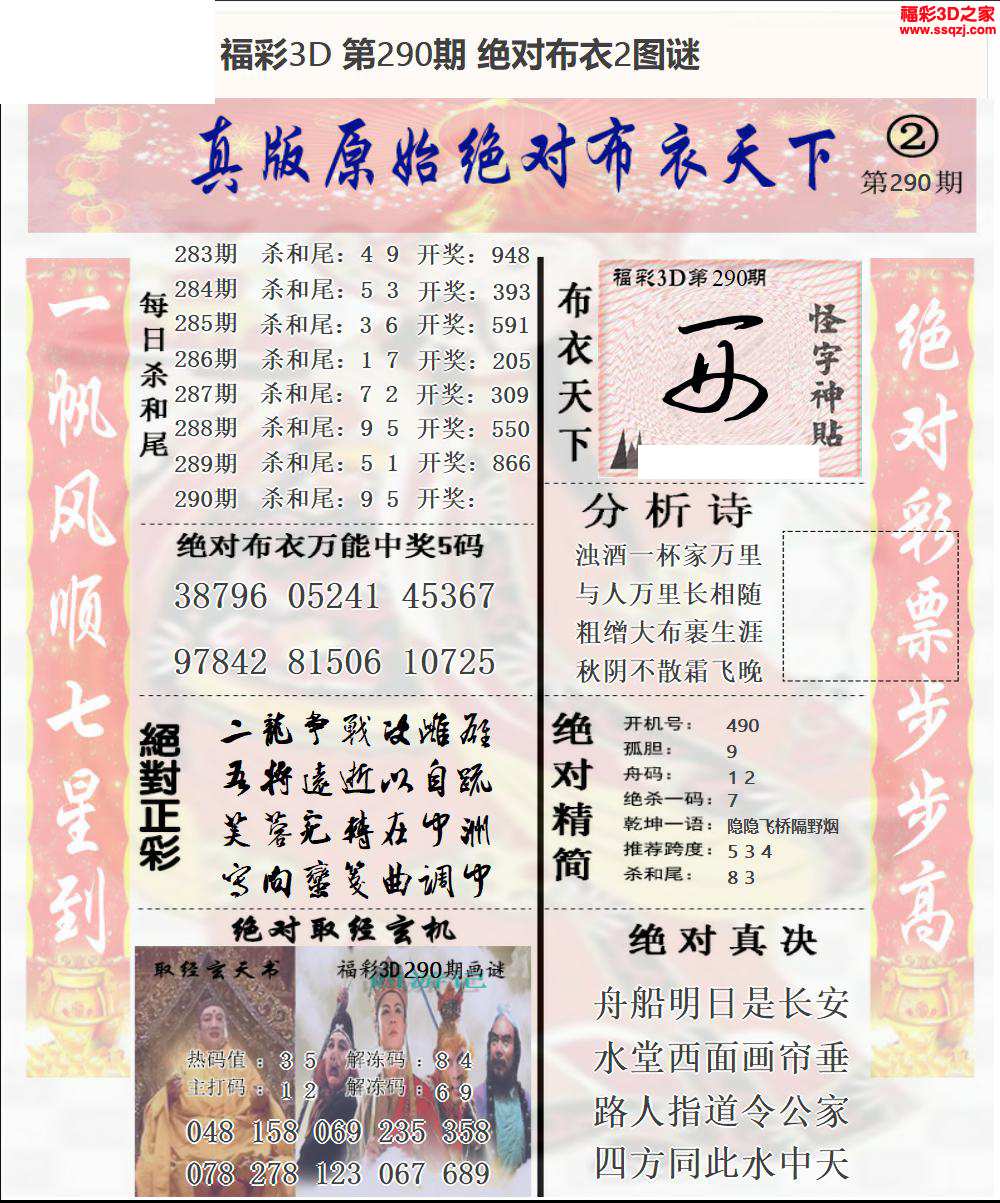 福彩3D之家
www.ssqzj.com
福彩3D 第290期 绝对布衣2图谜
真版原始绝对布衣天下
②
第290期
一帆风顺七星到
每日杀和尾
283期 杀和尾：4 9 开奖：948
284期 杀和尾：5 3 开奖：393
285期 杀和尾：3 6 开奖：591
286期 杀和尾：1 7 开奖：205
287期 杀和尾：7 2 开奖：309
288期 杀和尾：9 5 开奖：550
289期 杀和尾：5 1 开奖：866
290期 杀和尾：9 5 开奖：
绝对布衣万能中奖5码
38796 05241 45367
97842 81506 10725
絕對正彩
二龍争戰决雌雄
吾将遠逝以自疏
芙蓉宛轉在中洲
写向蠻箋曲调中
绝对取经玄机
取经玄天书
福彩3D290期画谜
热码值：3 5 解冻码：8 4
主打码：1 2 解冻码：6 9
048 158 069 235 358
078 278 123 067 689
布衣天下
福彩3D第290期
怪字神贴
分析诗
浊酒一杯家万里
与人万里长相随
粗缯大布裹生涯
秋阴不散霜飞晚
绝对精简
开机号：490
孤胆：9
舟码：1 2
绝杀一码：7
乾坤一语：隐隐飞桥隔野烟
推荐跨度：5 3 4
杀和尾：8 3
绝对真决
舟船明日是长安
水堂西面画帘垂
路人指道令公家
四方同此水中天
绝对彩票步步高